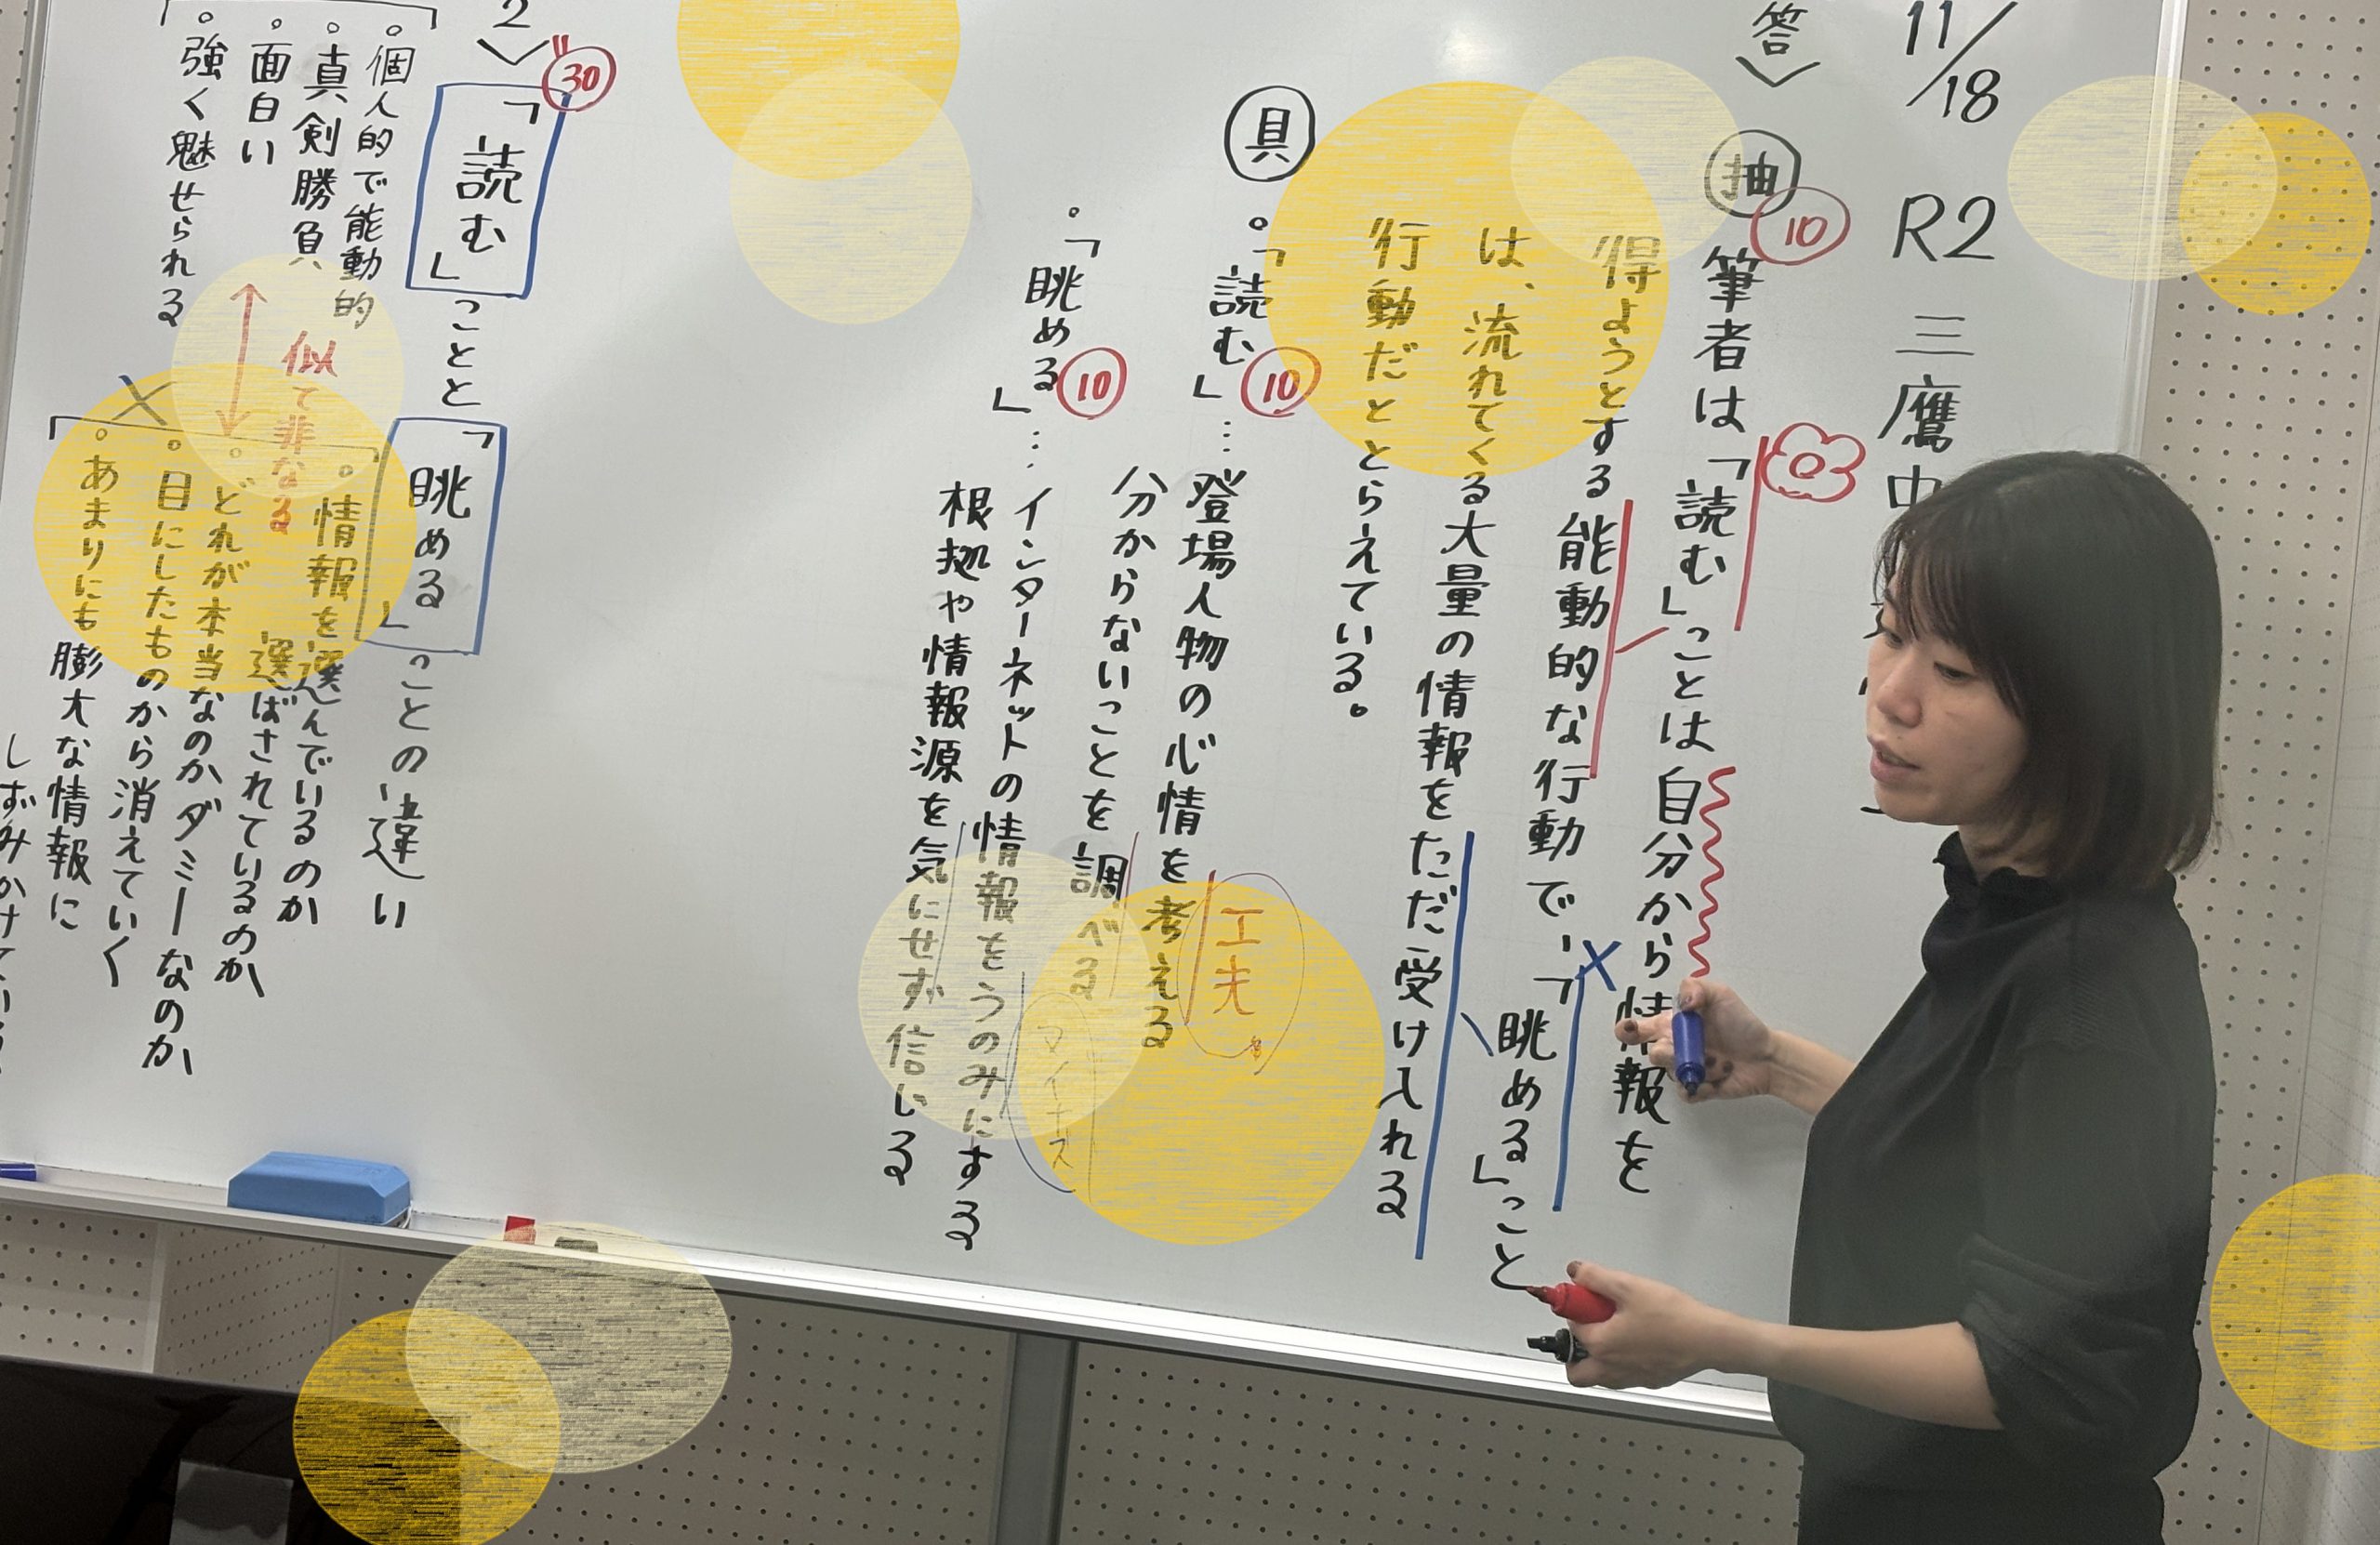 11/18 R2 三鷹中
答
抽 10 筆者は「読む」ことは自分から情報を
得ようとする能動的な行動で、「眺める」こと
は、流れてくる大量の情報をただ受け入れる
行動だととらえている。
具
。「読む」10…登場人物の心情を考える
分からないことを調べる
工夫
。「眺める」10…インターネットの情報をうのみにする
根拠や情報源を気にせず信じる
マイナス
2
30
「読む」ことと「眺める」ことの違い
。個人的で能動的
。真剣勝負
。面白い
。強く魅せられる
似て非なる
。情報を選んでいるのか
選ばされているのか
。どれが本当なのかダミーなのか
。目にしたものから消えていく
。あまりにも膨大な情報に